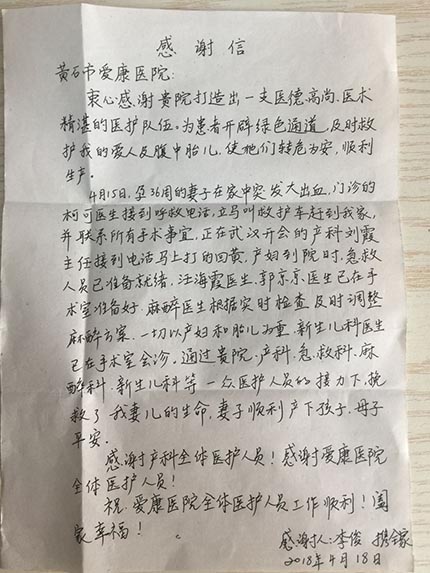 感谢信
黄石市爱康医院:
衷心感谢贵院打造出一支医德高尚、医术
精湛的医护队伍。为患者开辟绿色通道,及时救
护我的爱人及腹中胎儿,使她们转危为安,顺利
生产。
4月15日,孕36周的妻子在家中突发大出血,门诊的
柯可医生接到呼救电话,立马叫救护车赶到我家,
并联系所有手术事宜,正在武汉开会的产科刘霞
主任接到电话马上打的回黄,产妇到院时,急救
人员已准备就绪,汪海霞医生,郭京京医生已在手
术室准备好,麻醉医生根据实时检查,及时调整
麻醉方案,一切以产妇和胎儿为重,新生儿科医生
已在手术室会诊,通过贵院,产科,急救科,麻
醉科,新生儿科等一众医护人员的接力下,挽
救了我妻儿的生命,妻子顺利产下孩子,母子
平安。
感谢产科全体医护人员!感谢爱康医院
全体医护人员!
祝爱康医院全体医护人员工作顺利!阖
家幸福!
感谢人:李俊 携全家
2018年4月18日